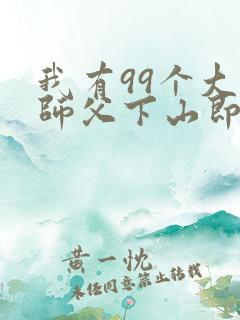 我有99个大
师父下山即
黄一忱
未经同意禁止转载